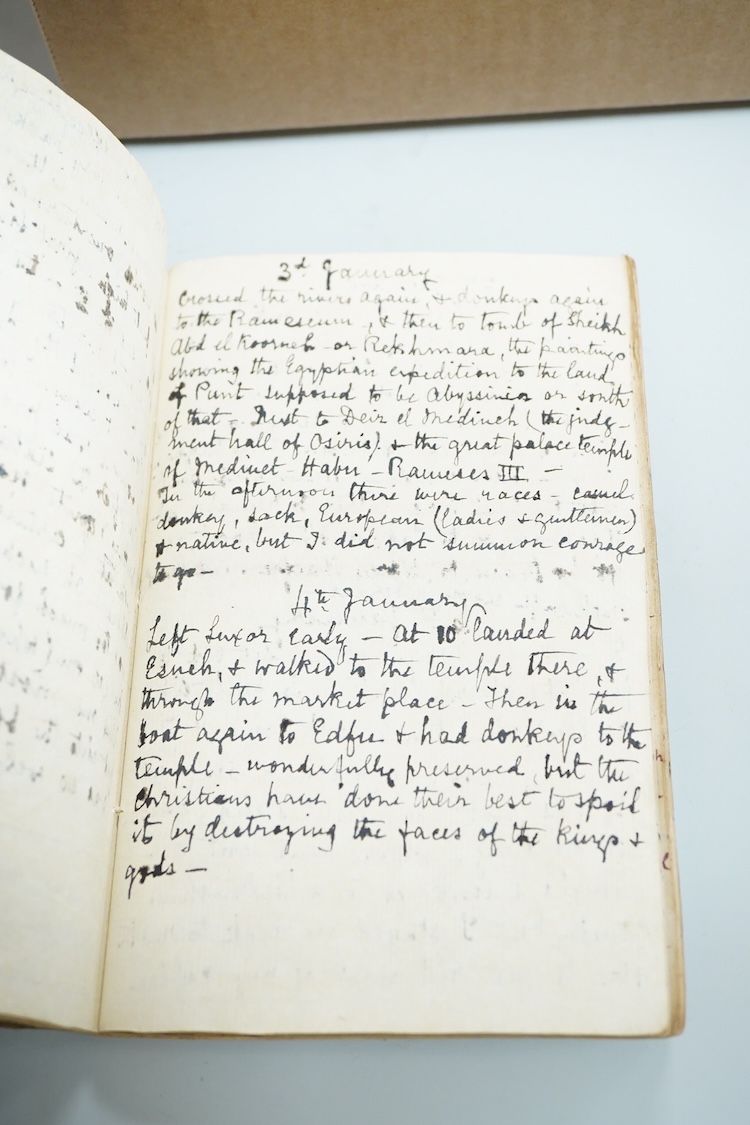 3d January
Crossed the rivers again, & donkeys again
to the Rameseum, & then to tomb of Sheikh
Abd el Koorneh or Rekhmara, the paintings
showing the Egyptian expedition to the land
of Punt supposed to be Abyssinia or south
of that - Next to Deir el Medineh (the judg-
ment hall of Osiris) & the great palace temple
of Medinet Habu - Rameses III -
In the afternoon there were races - camel
donkey, sack, European (ladies & gentlemen)
& native, but I did not summon courage
to go -
4th January
Left Luxor early - At 10 landed at
Esneh, & walked to the temple there, &
through the market place - Then in the
boat again to Edfu & had donkeys to the
temple - wonderfully preserved, but the
Christians have done their best to spoil
it by destroying the faces of the kings &
gods -